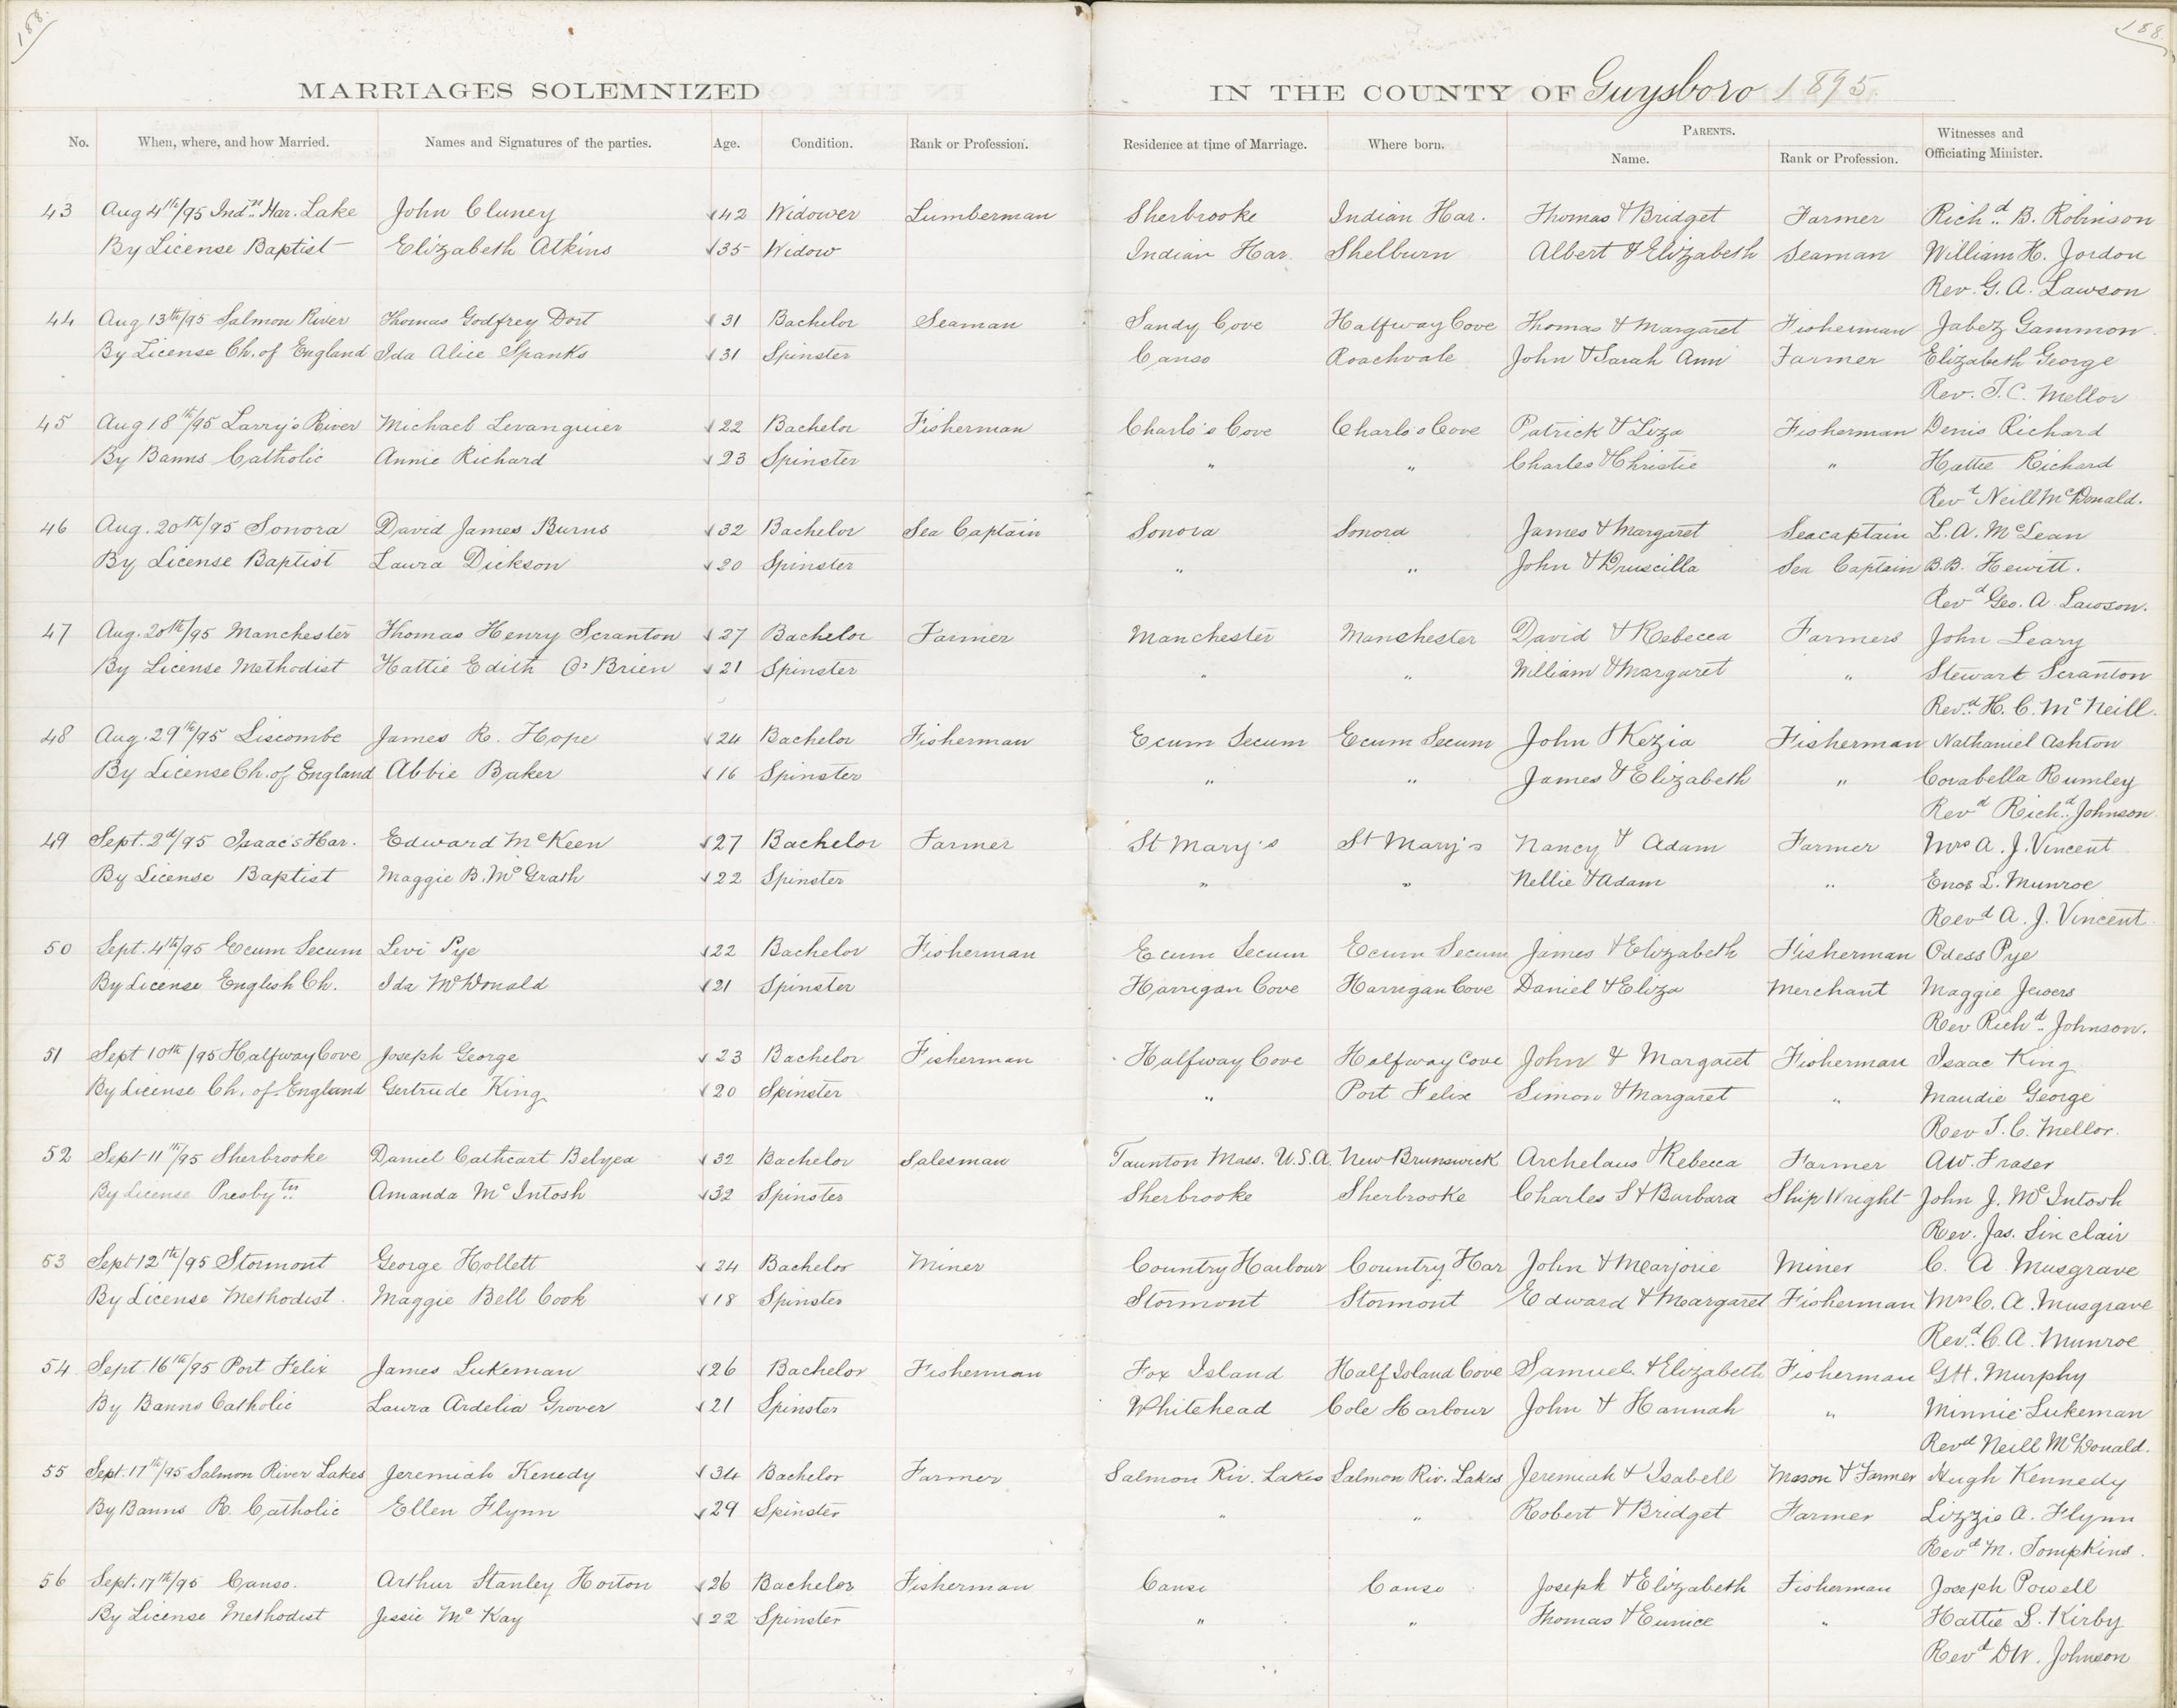 188. 188.
MARRIAGES SOLEMNIZED IN THE COUNTY OF Guysboro 1895.
No. When, where, and how Married. Names and Signatures of the parties. Age. Condition. Rank or Profession. Residence at time of Marriage. Where born. PARENTS. Name. Rank or Profession. Witnesses and Officiating Minister.
43 Aug 4th/95 Indn. Har. Lake John Cluney 42 Widower Lumberman Sherbrooke Indian Har. Thomas & Bridget Farmer Richd. B. Robinson
By License Baptist Elizabeth Atkins 35 Widow Indian Har. Shelburn Albert & Elizabeth Seaman William H. Jordon
Rev. G. A. Lawson
44 Aug 13th/95 Salmon River Thomas Godfrey Dort 31 Bachelor Seaman Sandy Cove Halfway Cove Thomas & Margaret Fisherman Jabez Gammon
By License Ch. of England Ida Alice Spanks 31 Spinster Canso Roachvale John & Sarah Ann Farmer Elizabeth George
Rev. T. C. Mellor
45 Aug 18th/95 Larry's River Michael Levanguier 22 Bachelor Fisherman Charlo's Cove Charlo's Cove Patrick & Liza Fisherman Denis Richard
By Banns Catholic Annie Richard 23 Spinster " " Charles & Christie " Hattie Richard
Revd Neill McDonald.
46 Aug. 20th/95 Sonora David James Burns 32 Bachelor Sea Captain Sonora Sonora James & Margaret Seacaptain L. A. McLean
By License Baptist Laura Dickson 20 Spinster " " John & Druscilla Sea Captain B. B. Hewitt.
Revd Geo. A. Lawson.
47 Aug. 20th/95 Manchester Thomas Henry Scranton 27 Bachelor Farmer Manchester Manchester David & Rebecca Farmers John Leary
By License Methodist Hattie Edith O'Brien 21 Spinster " " William & Margaret " Stewart Scranton
Revd. H. C. McNeill.
48 Aug. 29th/95 Liscombe James R. Hope 24 Bachelor Fisherman Ecum Secum Ecum Secum John & Kezia Fisherman Nathaniel Ashton
By License Ch. of England Abbie Baker 16 Spinster " " James & Elizabeth " Corabella Rumley
Revd Richd. Johnson.
49 Sept. 2d/95 Isaac's Har. Edward McKeen 27 Bachelor Farmer St Mary's St Mary's Nancy & Adam Farmer Mrs A. J. Vincent
By License Baptist Maggie B. McGrath 22 Spinster " " Nellie & Adam " Enos L. Munroe
Revd A. J. Vincent
50 Sept. 4th/95 Ecum Secum Levi Pye 22 Bachelor Fisherman Ecum Secum Ecum Secum James & Elizabeth Fisherman Odess Pye
By License English Ch. Ida McDonald 21 Spinster Harrigan Cove Harrigan Cove Daniel & Eliza Merchant Maggie Jewers
Rev Richd. Johnson.
51 Sept 10th/95 Halfway Cove Joseph George 23 Bachelor Fisherman Halfway Cove Halfway Cove John & Margaret Fisherman Isaac King
By License Ch. of England Gertrude King 20 Spinster " Port Felix Simon & Margaret " Maudie George
Rev T. C. Mellor.
52 Sept 11th/95 Sherbrooke Daniel Cathcart Belyea 32 Bachelor Salesman Taunton Mass. U.S.A. New Brunswick Archelaus & Rebecca Farmer A.W. Fraser
By License Presbytn Amanda McIntosh 32 Spinster Sherbrooke Sherbrooke Charles S & Barbara Ship Wright John J. McIntosh
Rev. Jas. Sinclair
53 Sept 12th/95 Stormont George Hollett 24 Bachelor Miner Country Harbour Country Har John & Mearjorie Miner C. A. Musgrave
By License Methodist. Maggie Bell Cook 18 Spinster Stormont Stormont Edward & Margaret Fisherman Mrs C. A. Musgrave
Revd. C. A. Munroe
54 Sept 16th/95 Port Felix James Lukeman 26 Bachelor Fisherman Fox Island Half Island Cove Samuel & Elizabeth Fisherman G.H. Murphy
By Banns Catholic Laura Ardelia Grover 21 Spinster Whitehead Cole Harbour John & Hannah " Minnie Lukeman
Revd Neill McDonald.
55 Sept. 17th/95 Salmon River Lakes Jeremiah Kenedy 34 Bachelor Farmer Salmon Riv. Lakes Salmon Riv. Lakes Jeremiah & Isabell Mason & Farmer Hugh Kennedy
By Banns R. Catholic Ellen Flynn 29 Spinster " " Robert & Bridget Farmer Lizzie A. Flynn
Revd M. Tompkins.
56 Sept. 17th/95 Canso. Arthur Stanley Horton 26 Bachelor Fisherman Canso Canso Joseph & Elizabeth Fisherman Joseph Powell
By License Methodist Jessie McKay 22 Spinster " " Thomas & Eunice " Hattie S. Kirby
Revd D.W. Johnson